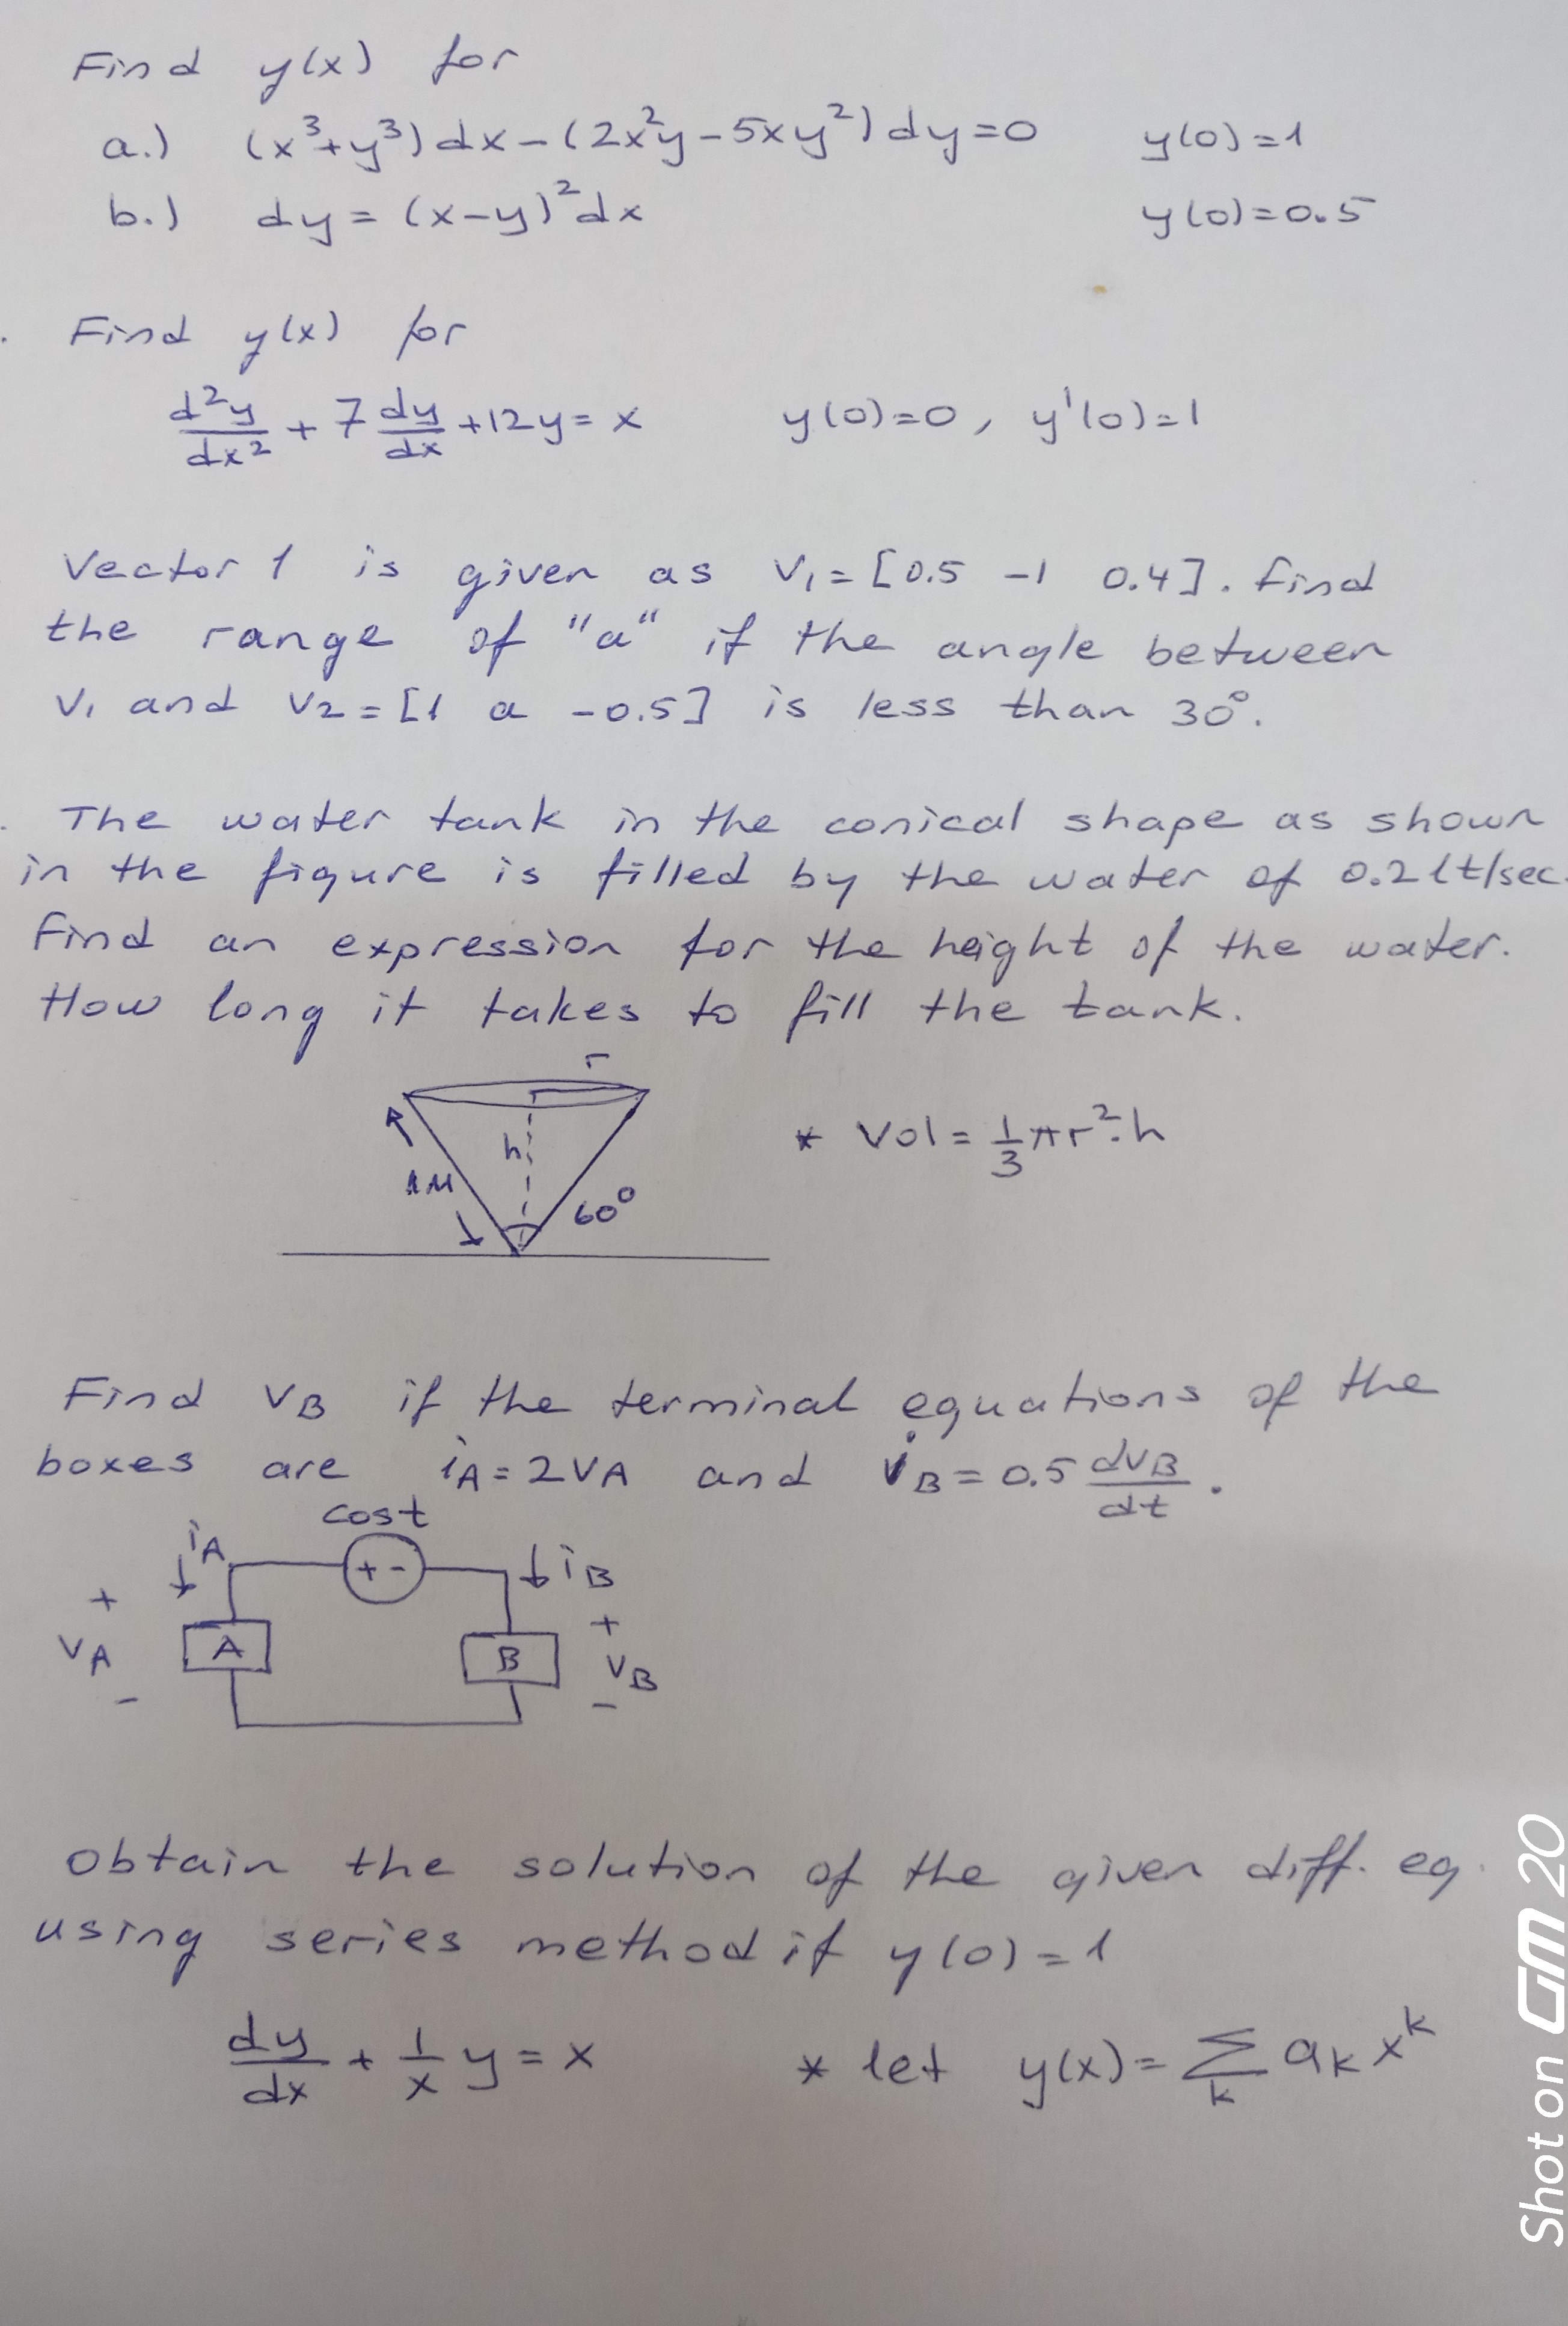 Find y(x) for
a.) (x³+y³)dx-(2x²y-5xy²)dy=0 y(0)=1
b.) dy=(x-y)²dx y(0)=0.5
. Find y(x) for
d²y/dx² + 7 dy/dx +12y= x y(0)=0, y'(0)=1
Vector 1 is given as V₁=[0.5 -1 0.4]. find
the range of "a" if the angle between
V₁ and V2=[1 a -0.5] is less than 30°.
. The water tank in the conical shape as shown
in the figure is filled by the water of 0.2lt/sec.
Find an expression for the height of the water.
How long it takes to fill the tank.
r
h
1M
60°
* Vol = 1/3 πr².h
Find VB if the terminal equations of the
boxes are iA=2VA and iB=0.5 dVB/dt.
cost
iA
+ -
iB
+
VA
-
A
B
+
VB
-
Obtain the solution of the given diff. eq.
using series method if y(0)=1
dy/dx + 1/x y = x * let y(x)= Σk akx^k
Shot on GM 20